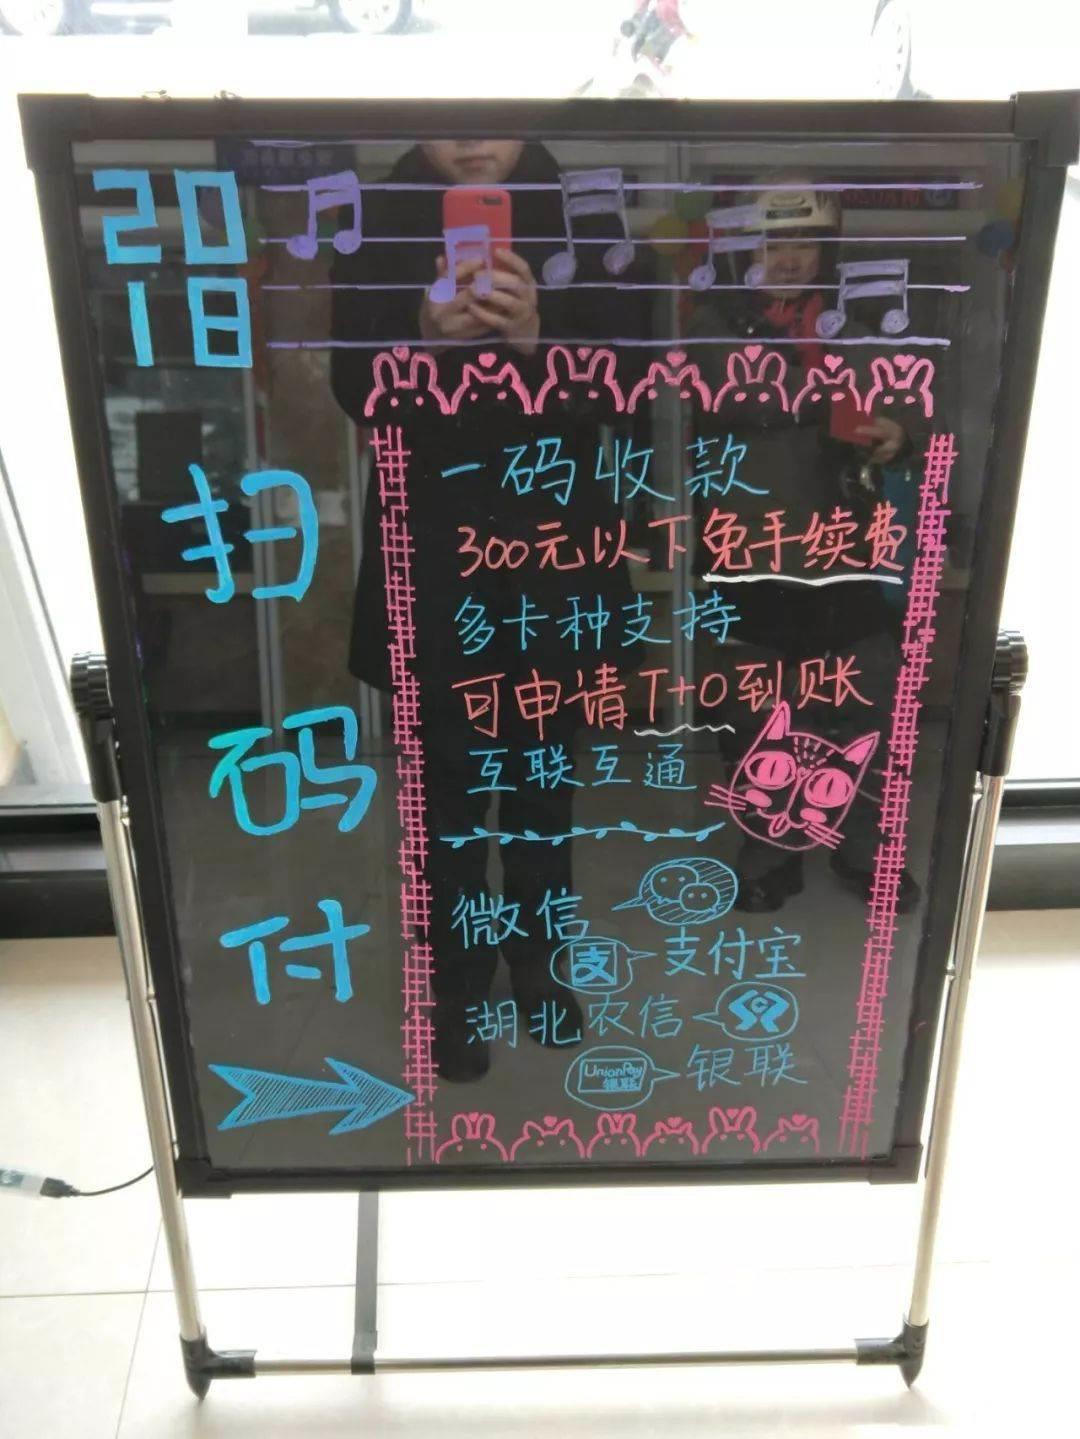 2018
扫码付
一码收款
300元以下免手续费
多卡种支持
可申请T+0到账
互联互通
微信
支 支付宝
湖北农信
UnionPay
银联
银联